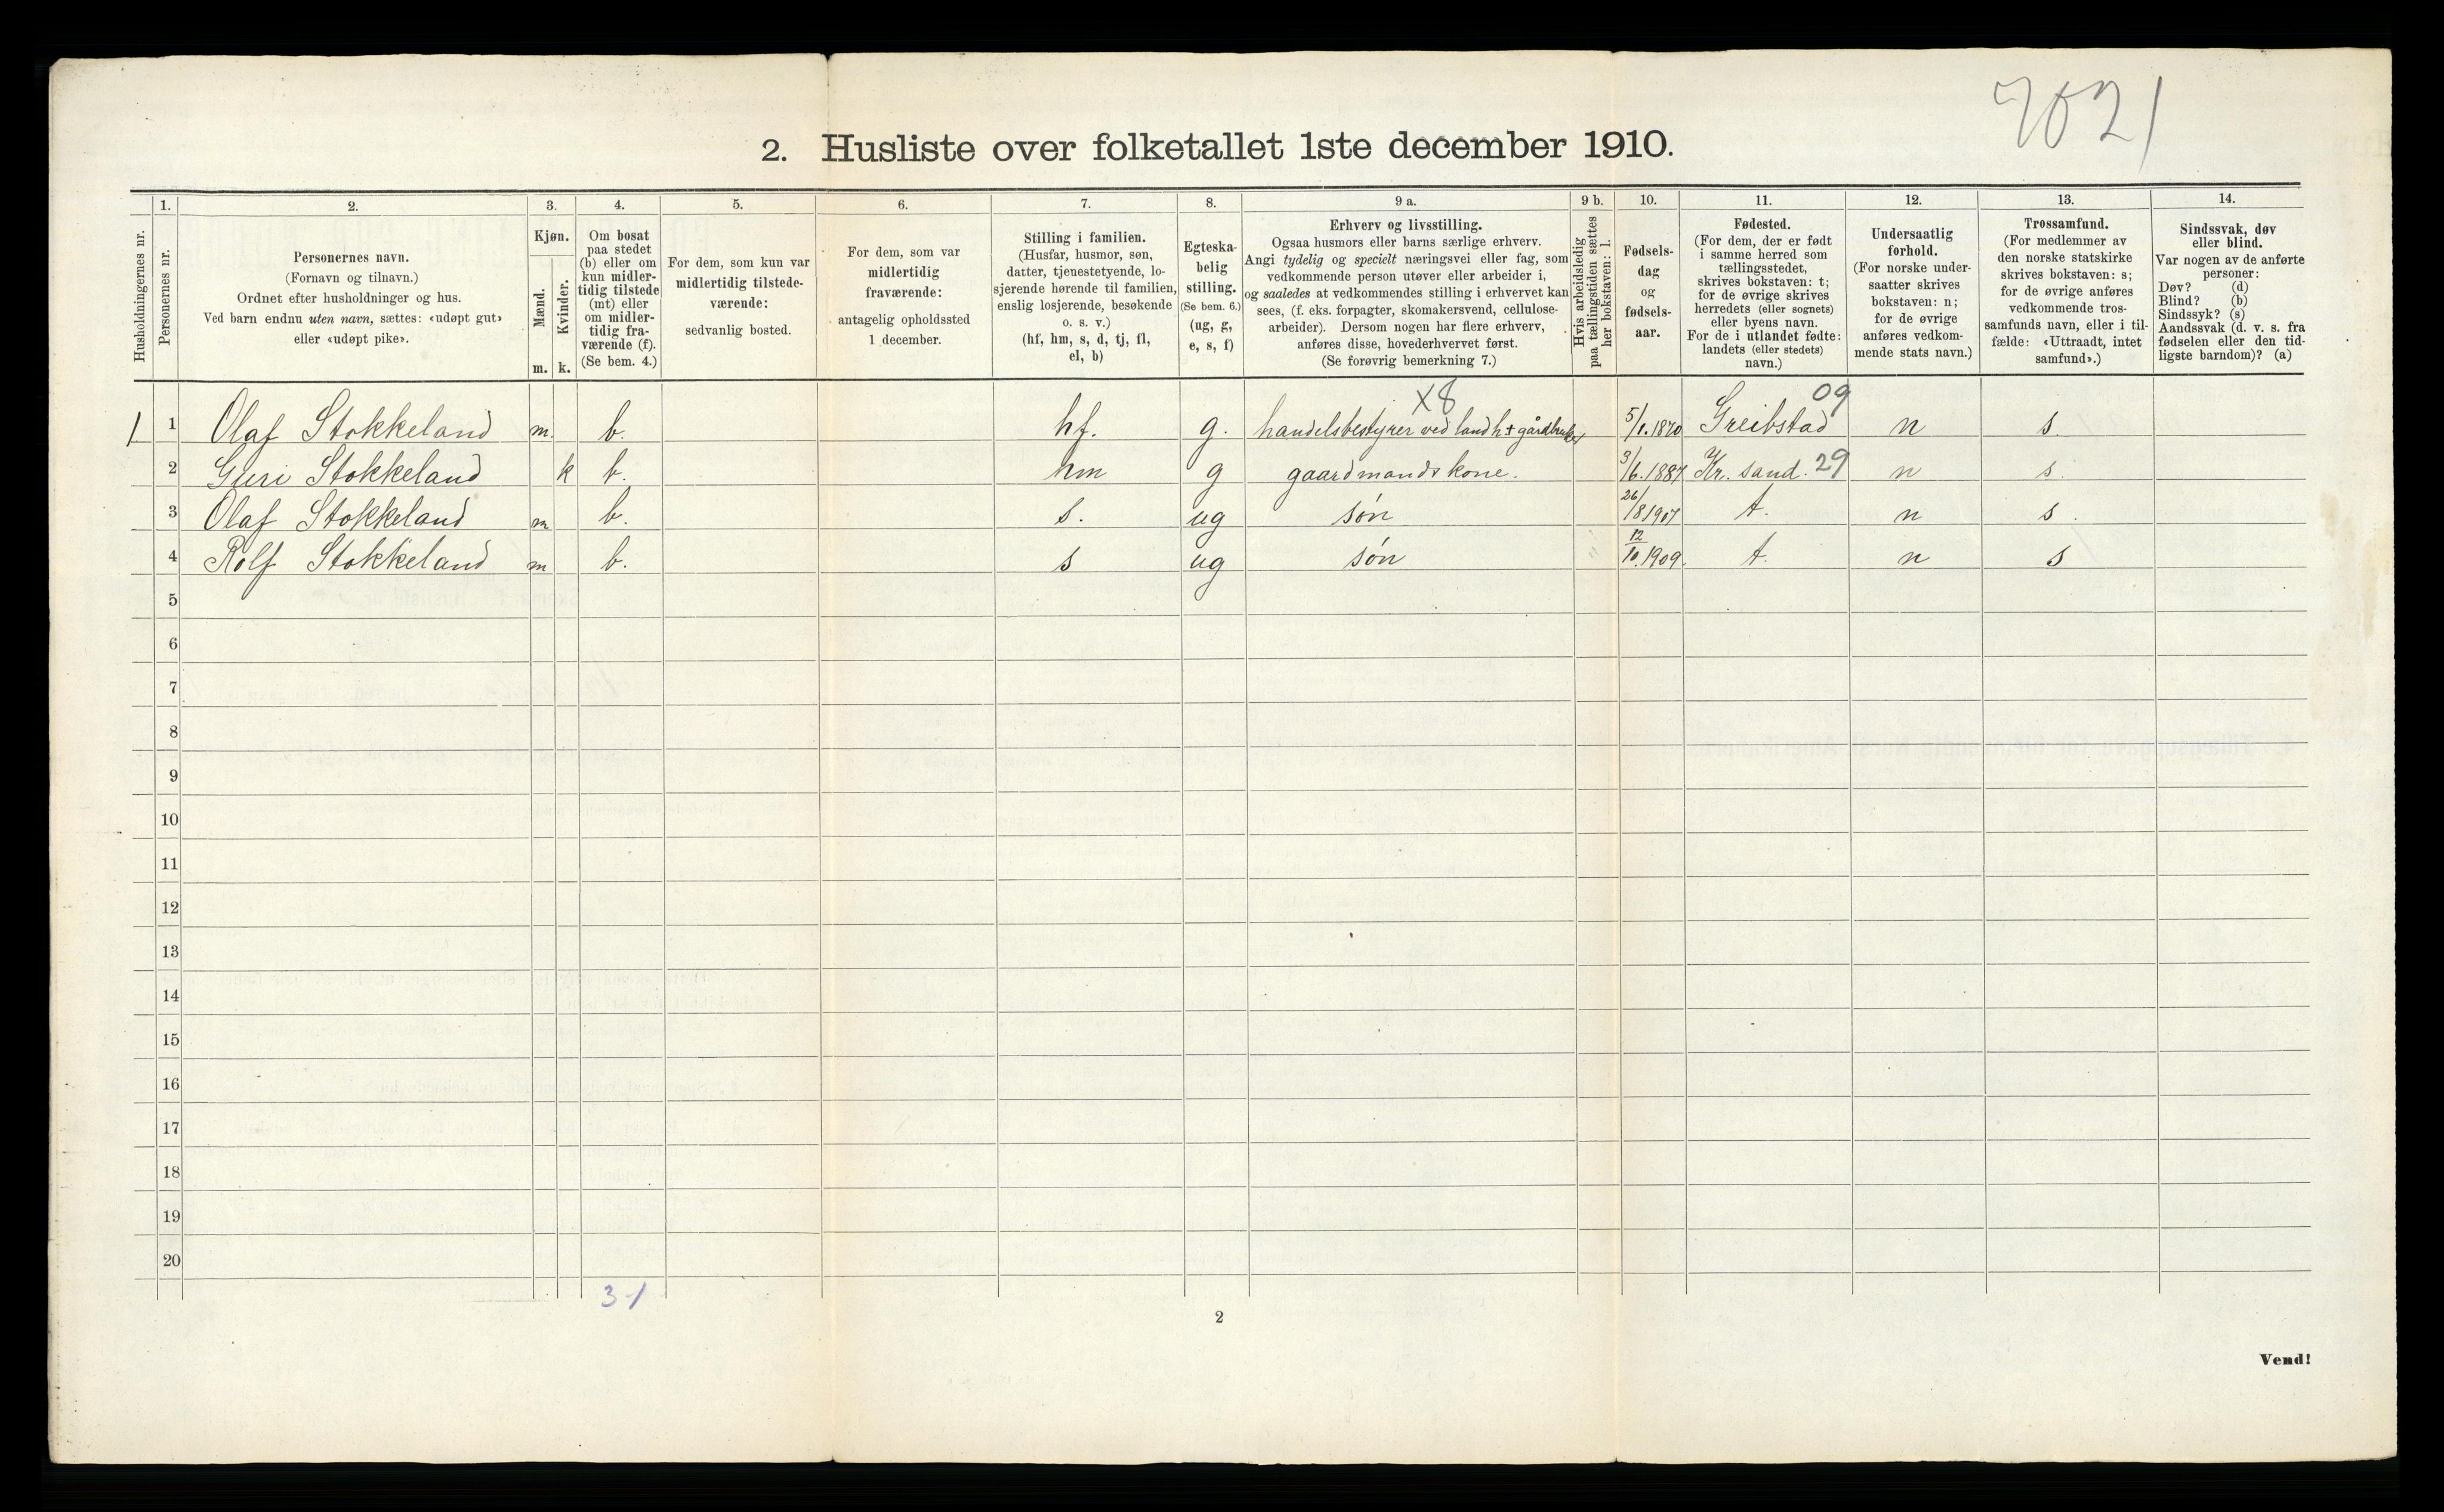 7021
2. Husliste over folketallet 1ste december 1910.
Husholdningernes nr.
1.
Personernes nr.
2.
Personernes navn.
(Fornavn og tilnavn.)
Ordnet efter husholdninger og hus.
Ved barn endnu uten navn, sættes: «udøpt gut»
eller «udøpt pike».
3.
Kjøn.
Mænd.
Kvinder.
m. k.
4.
Om bosat
paa stedet
(b) eller om
kun midler-
tidig tilstede
(mt) eller
om midler-
tidig fra-
værende (f).
(Se bem. 4.)
5.
For dem, som kun var
midlertidig tilstede-
værende:
sedvanlig bosted.
6.
For dem, som var
midlertidig
fraværende:
antagelig opholdssted
1 december.
7.
Stilling i familien.
(Husfar, husmor, søn,
datter, tjenestetyende, lo-
sjerende hørende til familien,
enslig losjerende, besøkende
o. s. v.)
(hf, hm, s, d, tj, fl,
el, b)
8.
Egteska-
belig
stilling.
(Se bem. 6.)
(ug, g,
e, s, f)
9 a.
Erhverv og livsstilling.
Ogsaa husmors eller barns særlige erhverv.
Angi tydelig og specielt næringsvei eller fag, som
vedkommende person utøver eller arbeider i,
og saaledes at vedkommendes stilling i erhvervet kan
sees, (f. eks. forpagter, skomakersvend, cellulose-
arbeider). Dersom nogen har flere erhverv,
anføres disse, hovederhvervet først.
(Se forøvrig bemerkning 7.)
9 b.
Hvis arbeidsledig
paa tællingstiden sættes
her bokstaven: l.
10.
Fødsels-
dag
og
fødsels-
aar.
11.
Fødested.
(For dem, der er født
i samme herred som
tællingsstedet,
skrives bokstaven: t;
for de øvrige skrives
herredets (eller sognets)
eller byens navn.
For de i utlandet fødte:
landets (eller stedets)
navn.)
12.
Undersaatlig
forhold.
(For norske under-
saatter skrives
bokstaven: n;
for de øvrige
anføres vedkom-
mende stats navn.)
13.
Trossamfund.
(For medlemmer av
den norske statskirke
skrives bokstaven: s;
for de øvrige anføres
vedkommende tros-
samfunds navn, eller i til-
fælde: «Uttraadt, intet
samfund».)
14.
Sindssvak, døv
eller blind.
Var nogen av de anførte
personer:
Døv? (d)
Blind? (b)
Sindssyk? (s)
Aandssvak (d. v. s. fra
fødselen eller den tid-
ligste barndom)? (a)
x8 09
1 1 Olaf Stokkeland m. b. hf. g. handelsbestyrer ved landh + gårdbruker 5/1.1870 Greibstad n s.
2 Guri Stokkeland k b. hm g gaardmandskone. 3/6.1887 Kr. sand. 29 n s.
3 Olaf Stokkeland m b. s. ug søn 26/8 1907 t. n s.
4 Rolf Stokkeland m b. s ug søn 12/10.1909. t. n s
5
6
7
8
9
10
11
12
13
14
15
16
17
18
19
20
3-1
2
Vend!